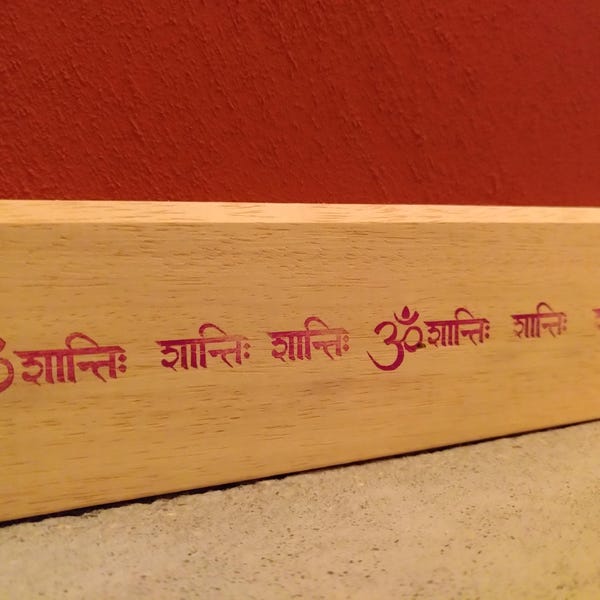 ॐ शान्तिः शान्तिः शान्तिः ॐ शान्तिः शान्तिः